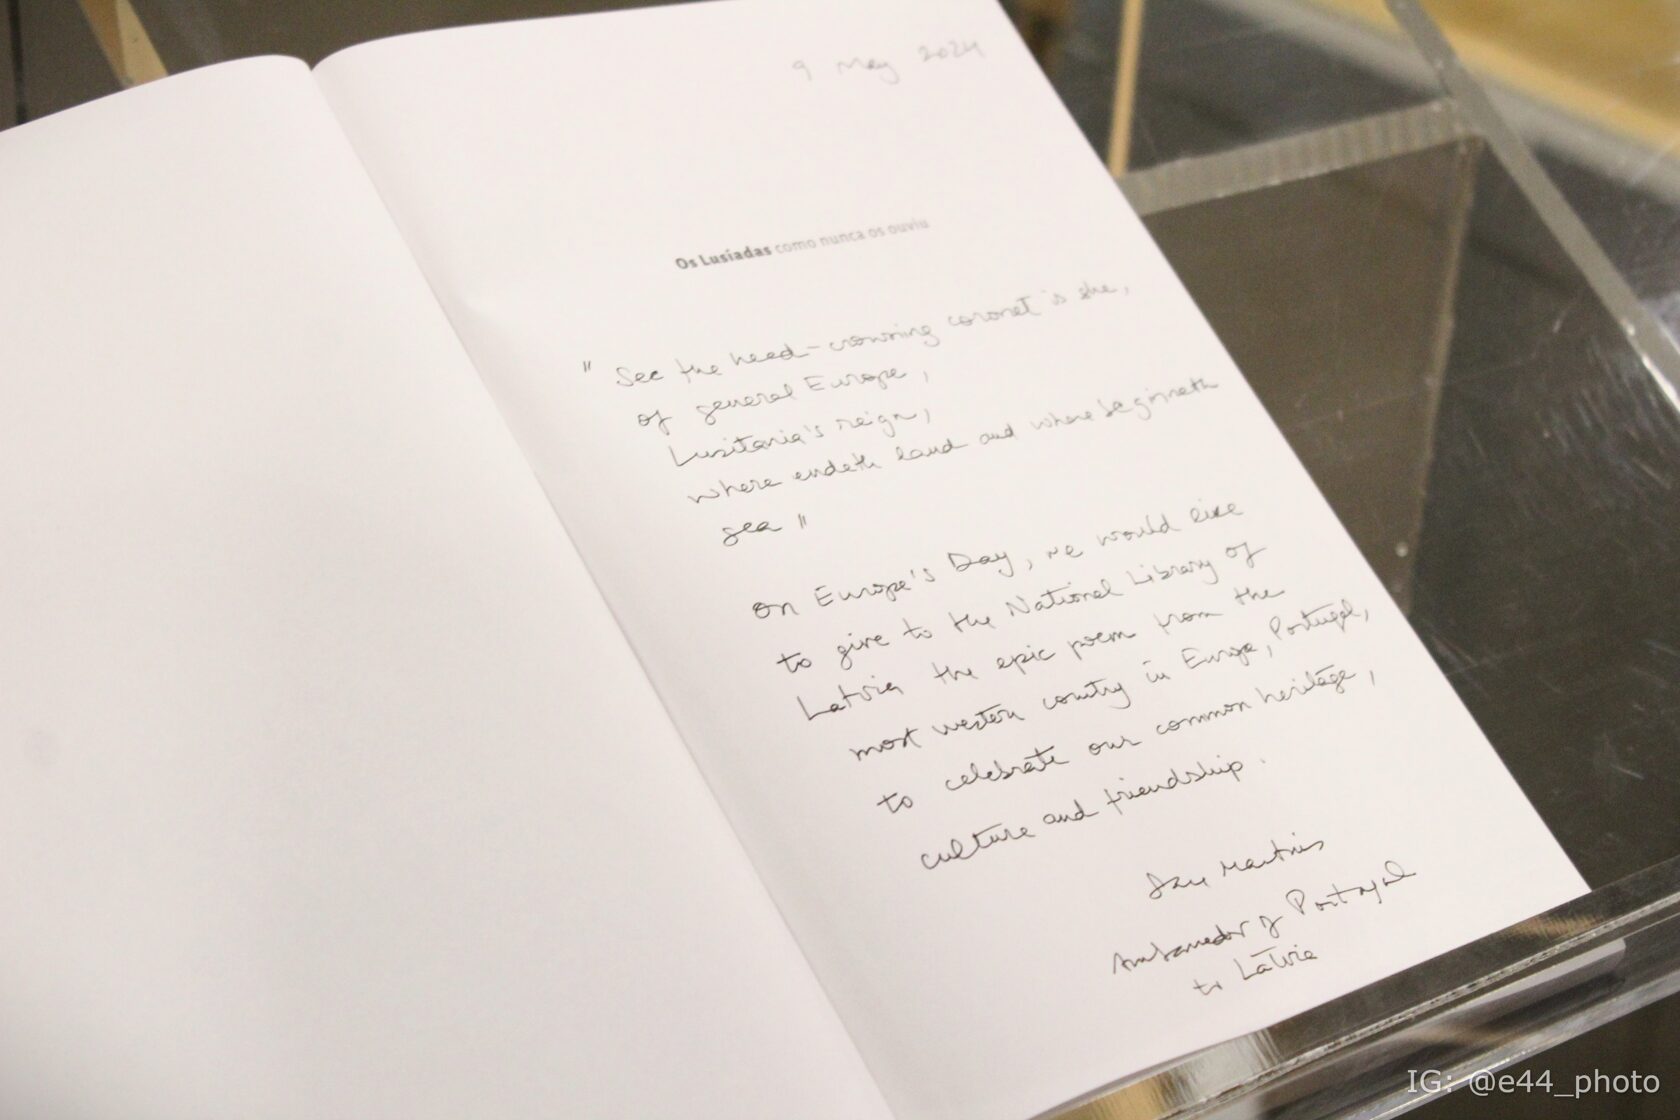 9 May 2024
Os Lusíadas como nunca os ouviu
" See the head-crowning coronet is she,
of general Europe,
Lusitania's reign,
where endeth land and where beginneth
sea "
On Europe's Day, we would like
to give to the National Library of
Latvia the epic poem from the
most western country in Europe, Portugal,
to celebrate our common heritage,
culture and friendship.
Martins
Ambassador of Portugal
to Latvia
IG: @e44_photo